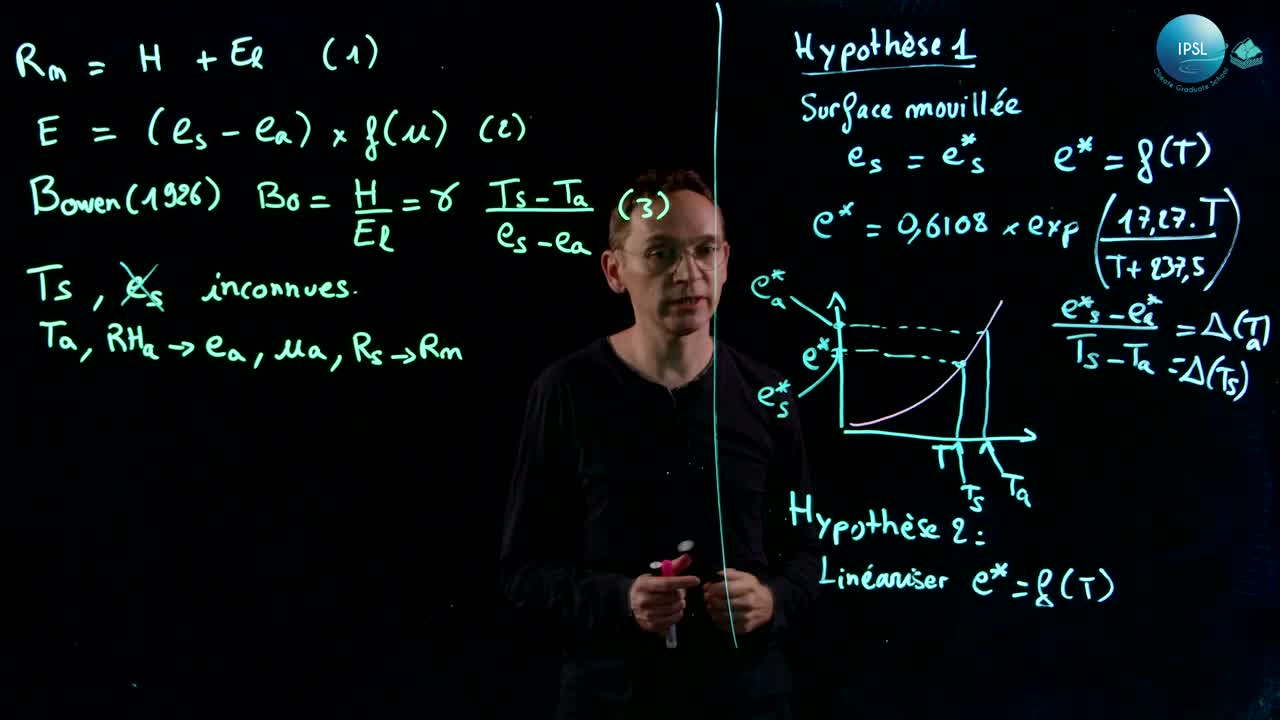 Rn = H + El (1)
E = (es - ea) × f(u) (2)
Bowen (1926) Bo = H/El = γ (Ts - Ta)/(es - ea) (3)
Ts, es inconnues.
Ta, RHa → ea, ua, Rs → Rn
Hypothèse 1
Surface mouillée
es = e*s e* = f(T)
e* = 0,6108 × exp (17,27.T / T + 237,5)
(e*s - e*a)/(Ts - Ta) = Δ(Ta)
= Δ(Ts)
e*a
e*
e*s
T
Ts
Ta
Hypothèse 2 :
Linéariser e* = f(T)
IPSL
Climate Graduate School